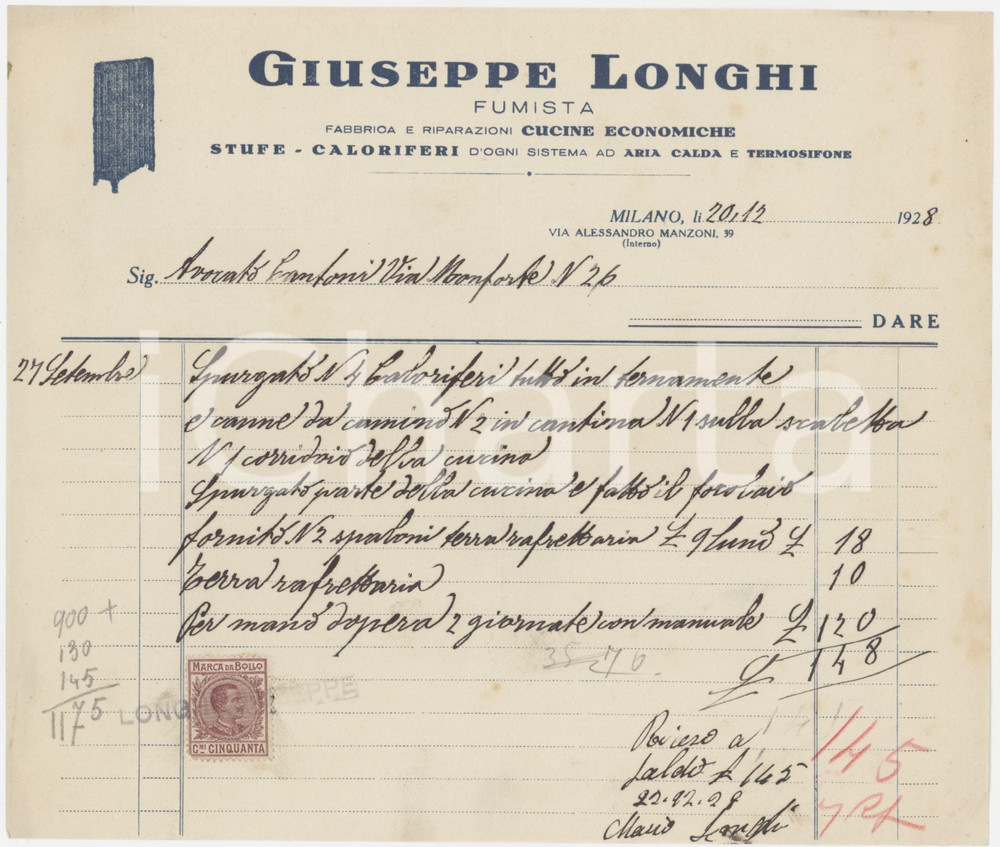 GIUSEPPE LONGHI
FUMISTA
FABBRICA E RIPARAZIONI CUCINE ECONOMICHE
STUFE - CALORIFERI D'OGNI SISTEMA AD ARIA CALDA E TERMOSIFONE
MILANO, li 20,12 1928
VIA ALESSANDRO MANZONI, 39
(Interno)
Sig. Avocato Cantoni Via Monforte N 26
DARE
27 Setembre Spurgato N 4 Caloriferi tutto in ternamente
e canne da camino N 2 in cantina N 1 sulla scaletta
N 1 corridoio della cucina
Spurgato parte della cucina e fatto il focolaio
fornito N 2 spaloni terra rafrettaria £ 9 luno £ 18
Terra rafrettaria 10
Per mano dopera 2 giornate con manuale £ 120
£ 148
900 +
130
145
1175
35 270.
MARCA DA BOLLO
CMI CINQUANTA
LONGHI GIUSEPPE
145
Ricevo a
saldo £ 145
22.12.28
Mario Longhi
iCharta